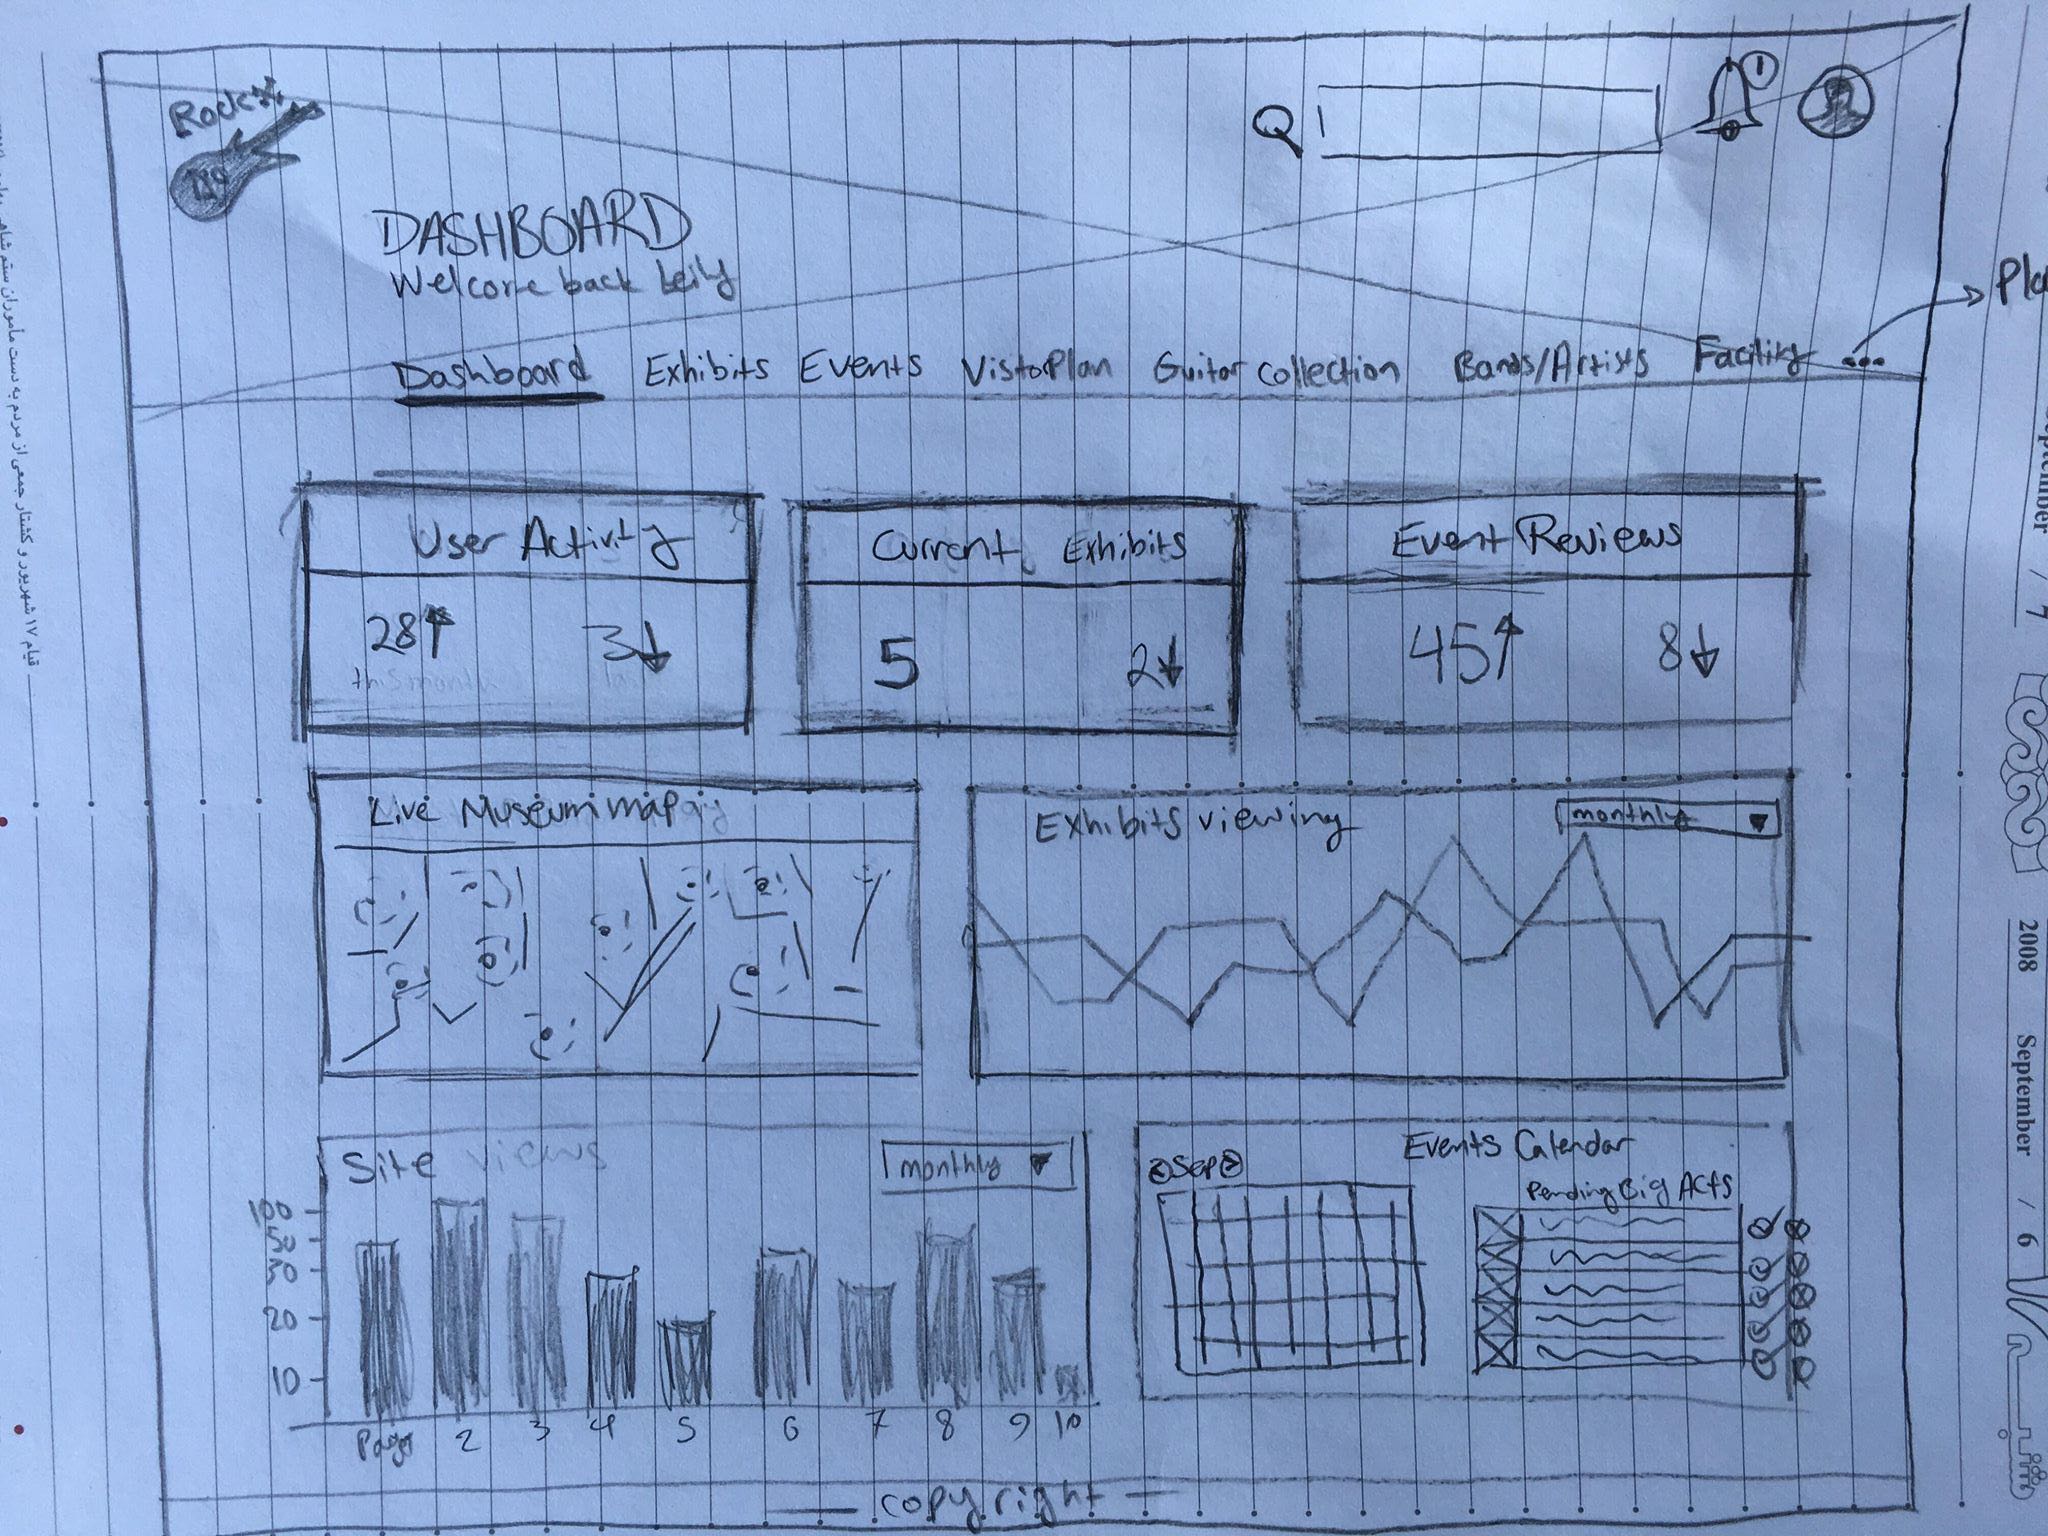 Rock
DASHBOARD
Welcome back Leily
Dashboard Exhibits Events VistorPlan Guitar collection Bands/Artists Facility ...
User Activity
28↑ 3↓
this month
Current Exhibits
5 2↓
Event Reviews
45↑ 8↓
Live Museum map
Exhibits viewing monthly
Site views monthly
100
50
30
20
10
Page 2 3 4 5 6 7 8 9 10
Events Calendar
Sep
Pending Big Acts
copyright
قیام ۱۷ شهریور و کشتار جمعی از مردم به دست ماموران ستم شاهی
September / 7
2008 September / 6